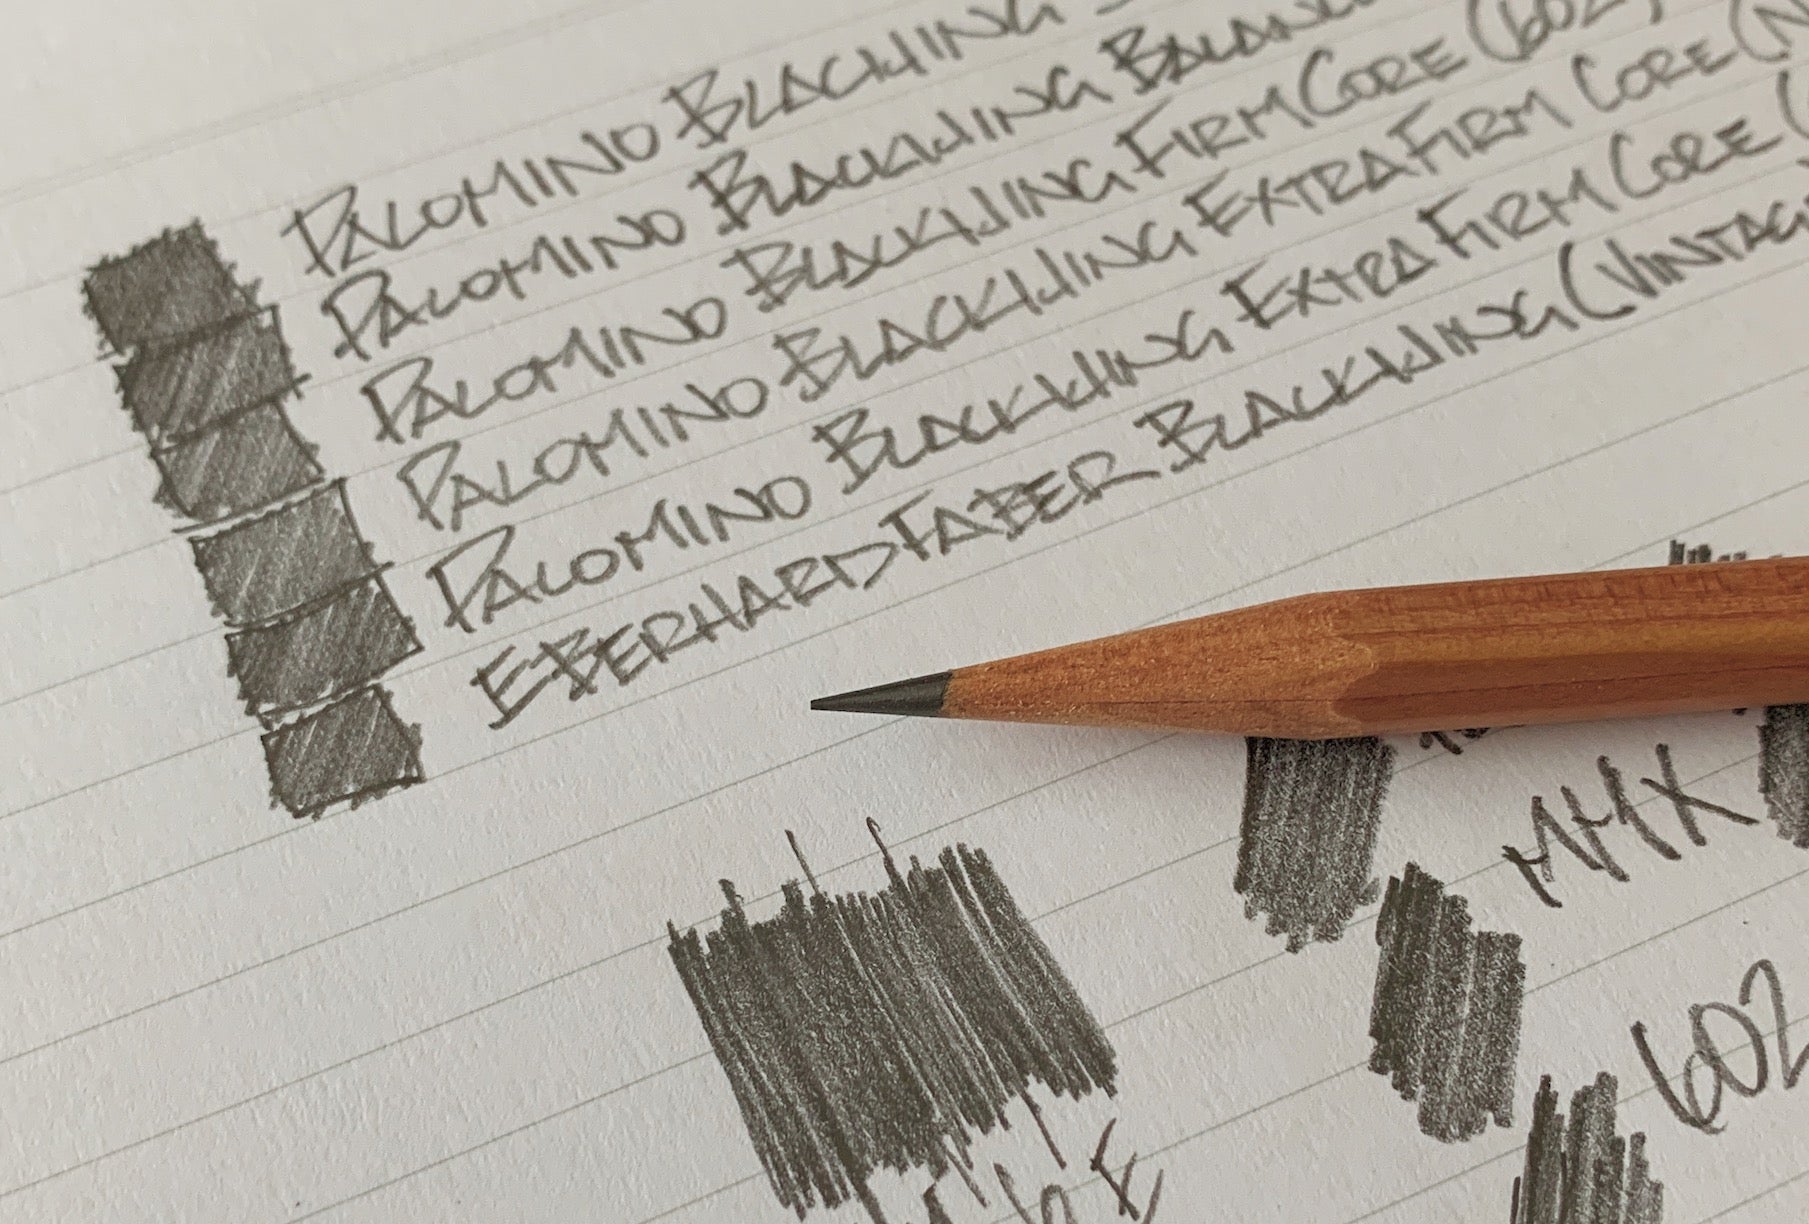 PALOMINO BLACKWING
PALOMINO BLACKWING BALANC
PALOMINO BLACKWING FIRM CORE (602)
PALOMINO BLACKWING EXTRA FIRM CORE (N
PALOMINO BLACKWING EXTRA FIRM CORE (
EBERHARD FABER BLACKWING (VINTAG
MMX
602